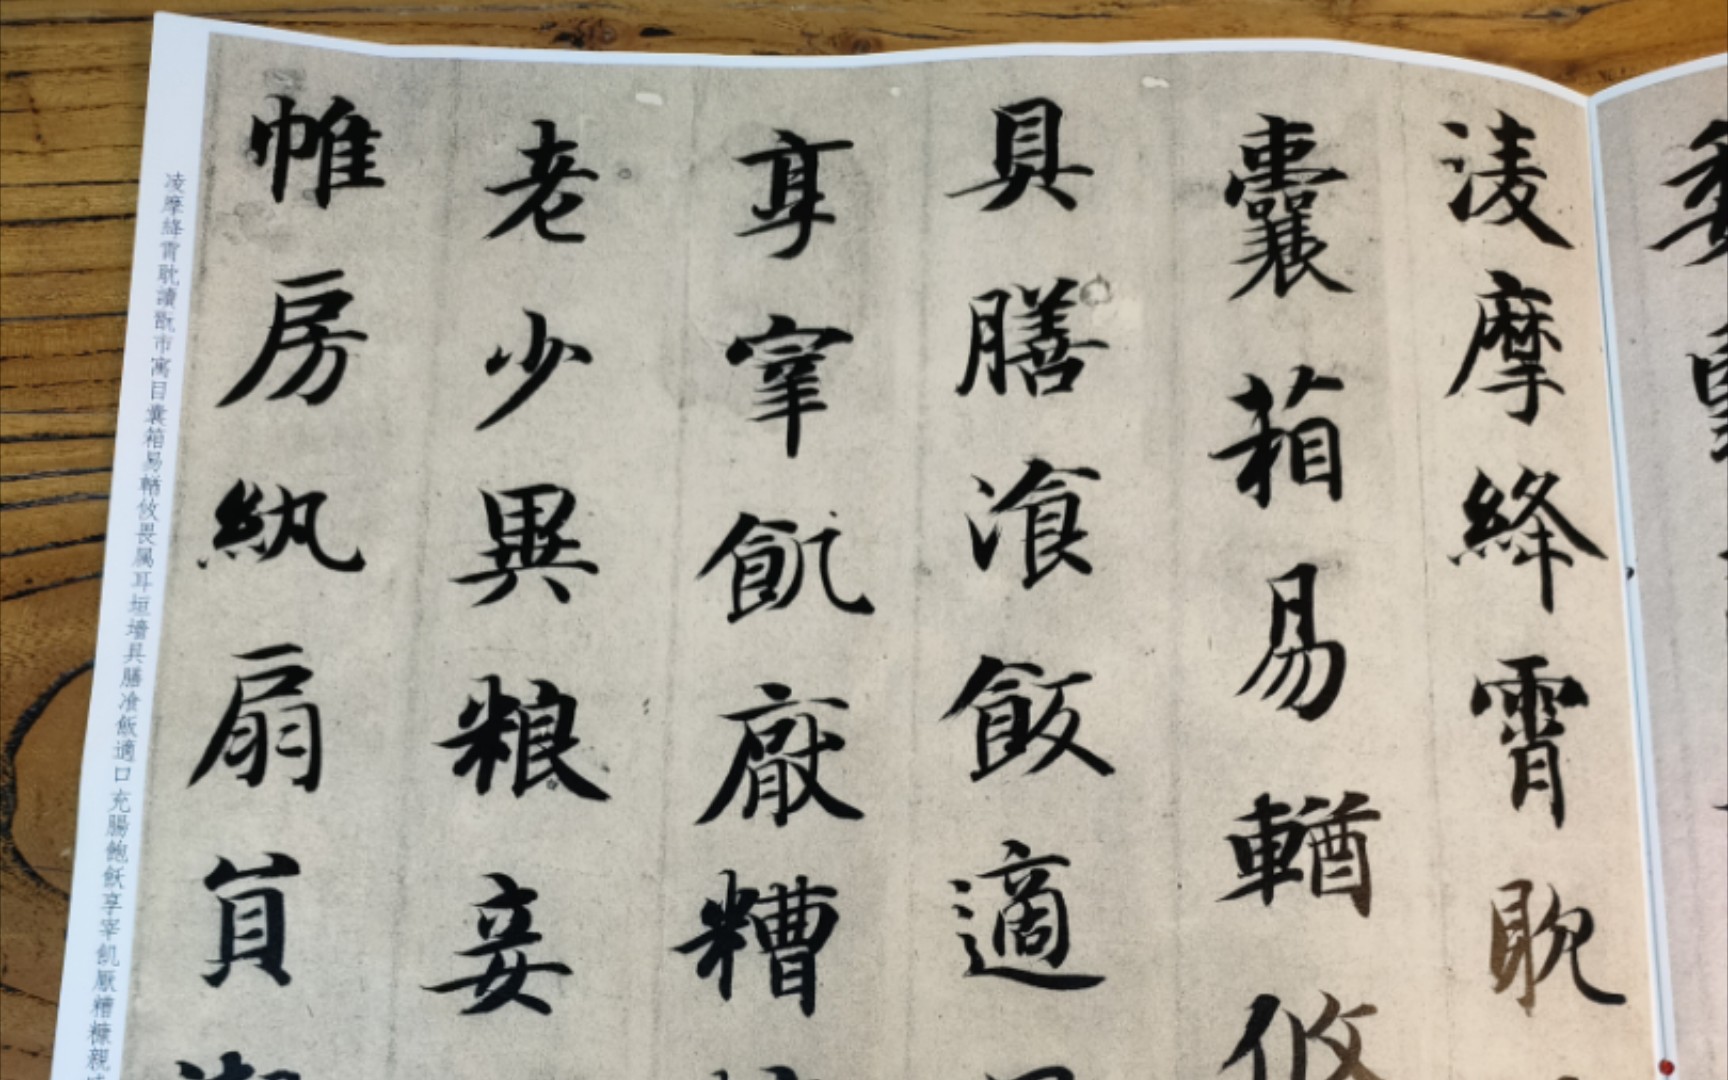 凌摩絳霄耽
囊箱易輶攸
具膳飡飯適
享宰飢厭糟
老少異粮妾
帷房紈扇員
凌摩絳霄耽讀翫市寓目囊箱易輶攸畏属耳垣墻具膳飡飯適口充腸飽飫享宰飢厭糟糠親